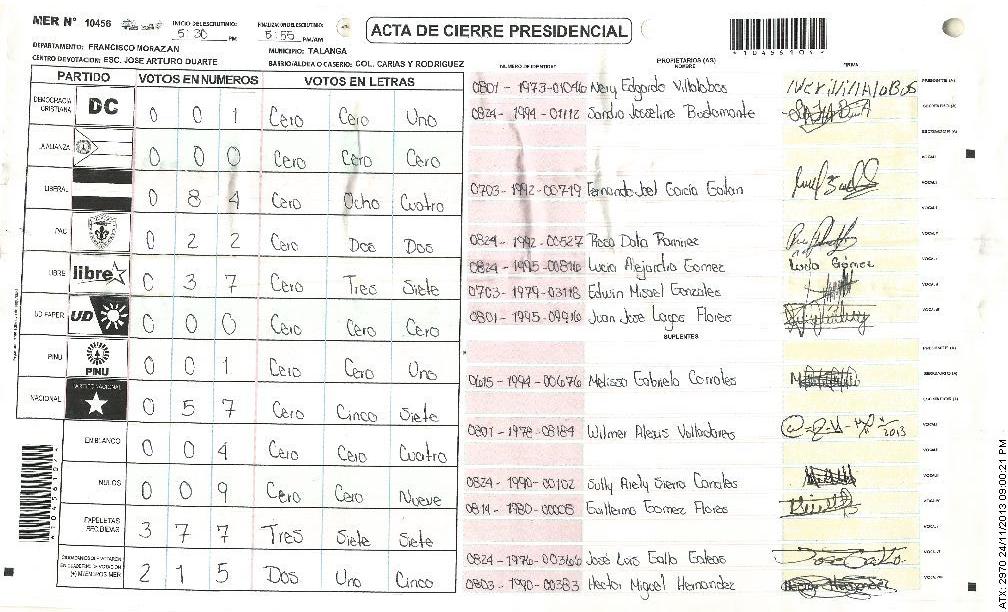 MER N° 10456
INICIO DEL ESCRUTINIO: 5:30 PM
FINALIZACION DEL ESCRUTINIO: 5:55 PM/AM
ACTA DE CIERRE PRESIDENCIAL
*10456101*
DEPARTAMENTO: FRANCISCO MORAZAN
MUNICIPIO: TALANGA
CENTRO DE VOTACION: ESC. JOSE ARTURO DUARTE
BARRIO/ALDEA O CASERIO: COL. CARIAS Y RODRIGUEZ
PARTIDO VOTOS EN NUMEROS VOTOS EN LETRAS
DEMOCRACIA CRISTIANA DC 0 0 1 Cero Cero Uno
LA ALIANZA 0 0 0 Cero Cero Cero
LIBERAL 0 8 4 Cero Ocho Cuatro
PAC 0 2 2 Cero Dos Dos
LIBRE libre 0 3 7 Cero Tres Siete
UD FAPER UD 0 0 0 Cero Cero Cero
PINU PINU 0 0 1 Cero Cero Uno
NACIONAL PARTIDO NACIONAL 0 5 7 Cero Cinco Siete
EN BLANCO 0 0 4 Cero Cero Cuatro
NULOS 0 0 9 Cero Cero Nueve
PAPELETAS RECIBIDAS 3 7 7 Tres Siete Siete
CIUDADANOS QUE VOTARON EN CUADERNO DE VOTACION (+) MIEMBROS MER 2 1 5 Dos Uno Cinco
NUMERO DE IDENTIDAD PROPIETARIOS (AS) NOMBRE FIRMA
0801 - 1973-01046 Nery Edgardo Villalobos PRESIDENTE (A)
0824 - 1994 - 01112 Sandra Joseline Bustamante SECRETARIO (A)
ESCRUTADOR (A)
VOCAL I
0703 - 1992 - 00719 Fernando Joel García Gaitan
0824 - 1992 - 00527 Rosa Dalia Ramirez
0824 - 1995 - 00816 Lucia Alejandra Gomez Lucia Gómez
0703 - 1979 - 03118 Edwin Misael Gonzales
0801 - 1995 - 09916 Juan Jose Lagos Flores
SUPLENTES
PRESIDENTE (A)
0615 - 1994 - 00676 Melissa Gabriela Corrales SECRETARIO (A)
ESCRUTADOR (A)
0801 - 1978 - 08184 Wilmer Alexis Valladares
0824 - 1990 - 00102 Sully Ariely Sierra Canales
0814 - 1980 - 00005 Guillermo Gomez Flores
0824 - 1976 - 00366 José Luis Gallo
0803 - 1990 - 00383 Hector Miguel Hernandez
ATX: 2970 24/11/2013 09:00:21 PM